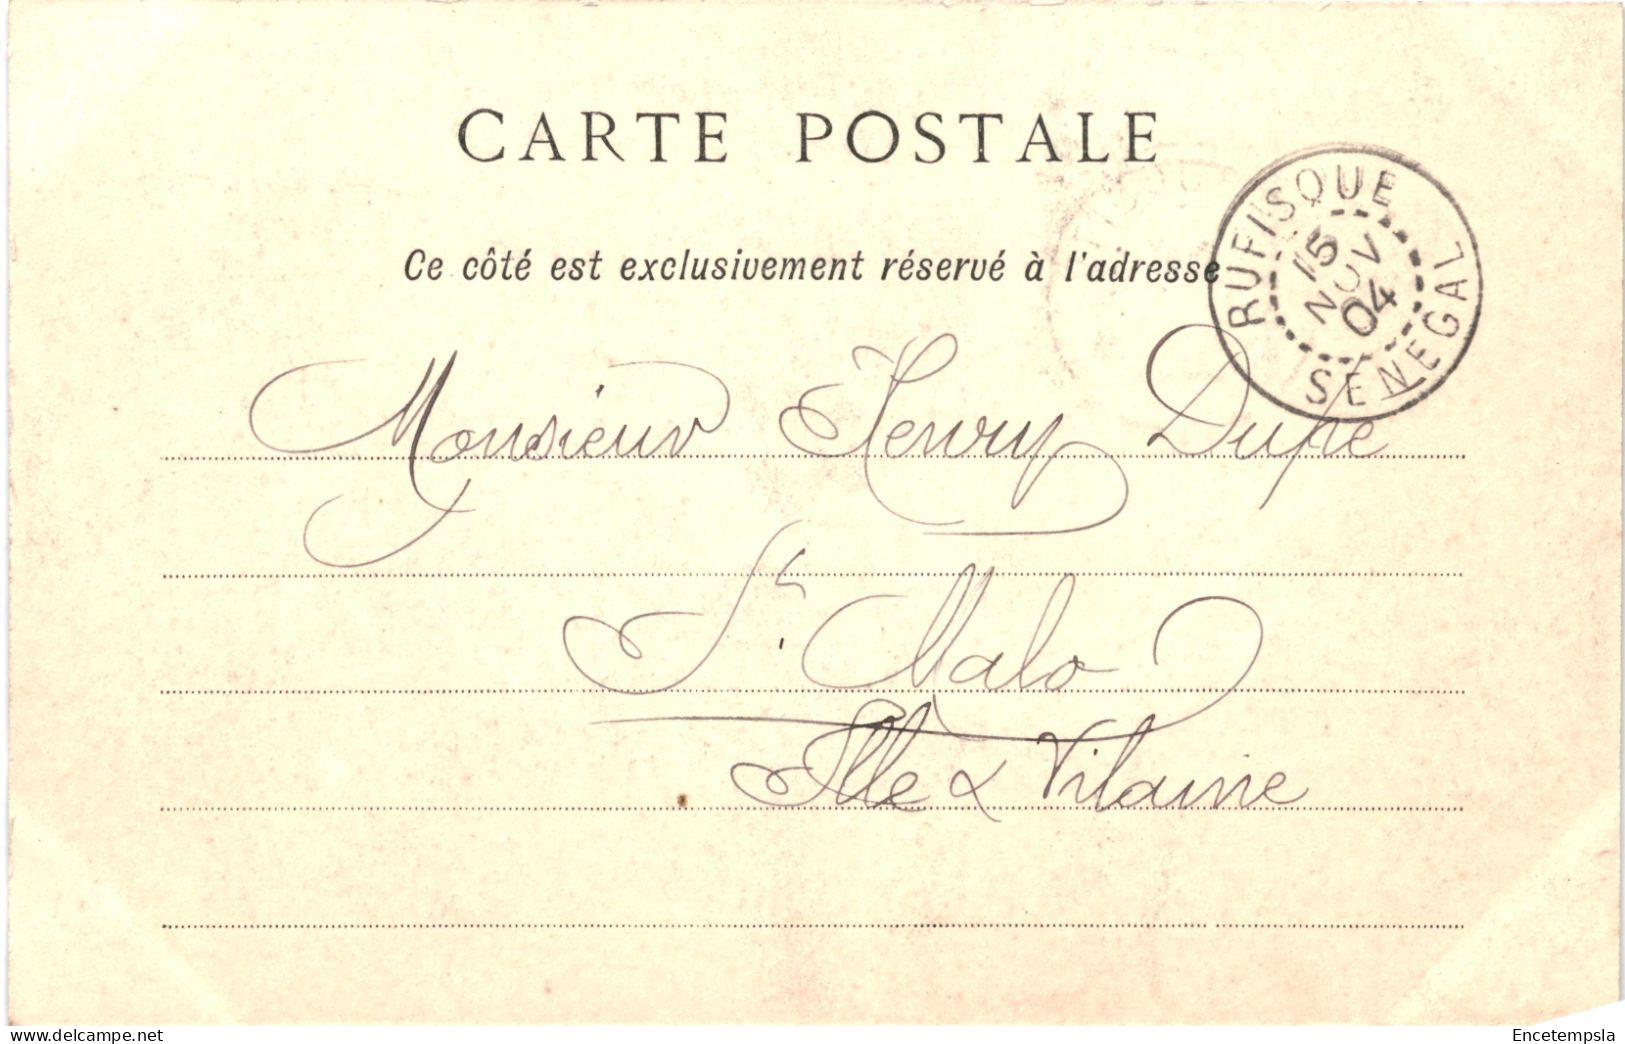 CARTE POSTALE
RUFISQUE
15
NOV
04
SENEGAL
Ce côté est exclusivement réservé à l'adresse
Monsieur Henry Dupé
St. Malo
Ille & Vilaine
www.delcampe.net
Encetempsla